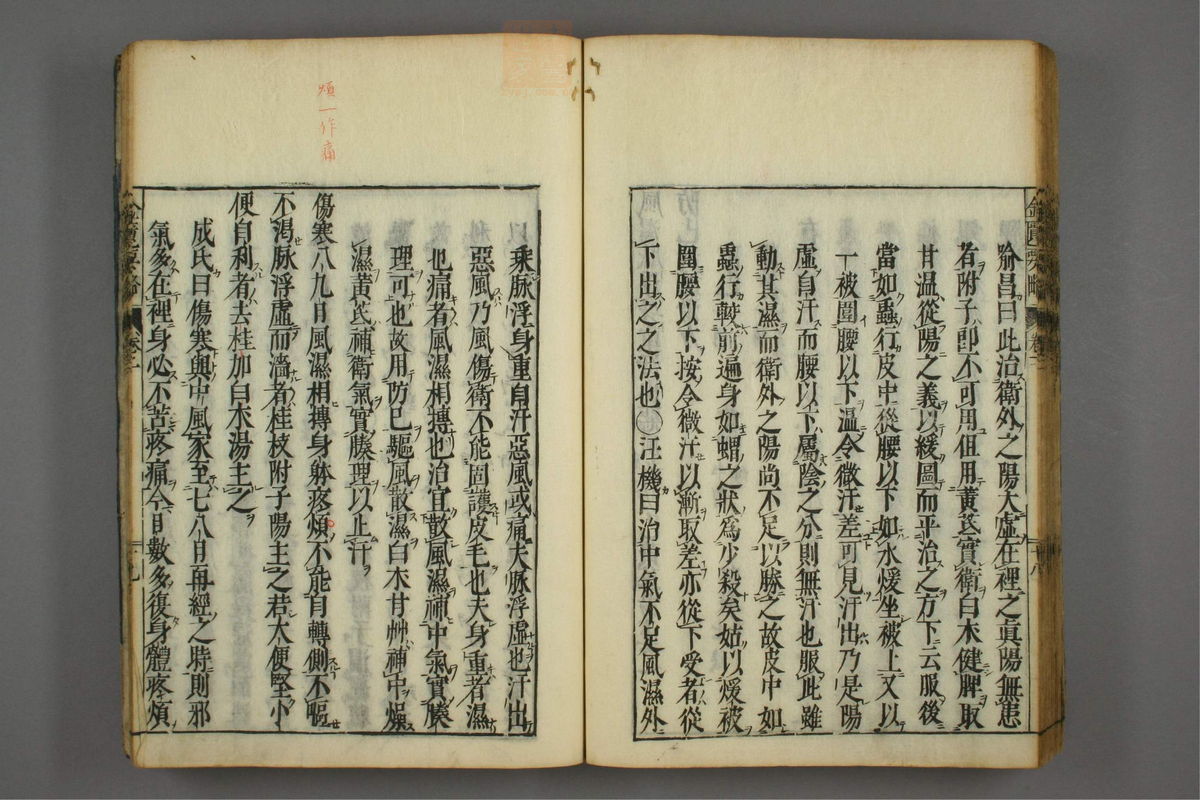 喻昌曰此治衛外之陽大虛在裡之眞陽無恙
者附子卽不可用但用黃芪實衛白木健脾取
甘溫從陽之義以緩圖而平治之方下云服後
當如蟲行皮中從腰以下如水煖坐被上又以
一被圍腰以下溫令微汗差可見汗出乃是陽
虛自汗而腰以下屬陰之分則無汗也服此雖
動其濕而衛外之陽尚不足以勝之故皮中如
蟲行較前遍身如蝟之狀爲少殺矣姑以煖被
圍腰以下按令微汗以漸取差亦從下受者從
下出之之法也 汪機曰治中氣不足風濕外
乘脉浮身重自汗惡風或痛夫脉浮虛也汗出
惡風乃風傷衛不能固護皮毛也夫身重者濕
也痛者風濕相摶也治宜散風濕補中氣實腠
理可也故用防巳驅風散濕白木甘艸補中燥
濕黃芪補衛氣實腠理以止汗
傷寒八九日風濕相摶身躰疼煩不能自轉側不嘔
不渴脉浮虛而濇者桂枝附子陽主之若大便堅小
便自利者去桂加白木湯主之
成氏曰傷寒與中風家至七八日再經之時則邪
氣多在裡身必不苦疼痛今日數多復身體疼煩
煩一作痛
金匱要略
卷二
十八
金匱要略
卷二
十九